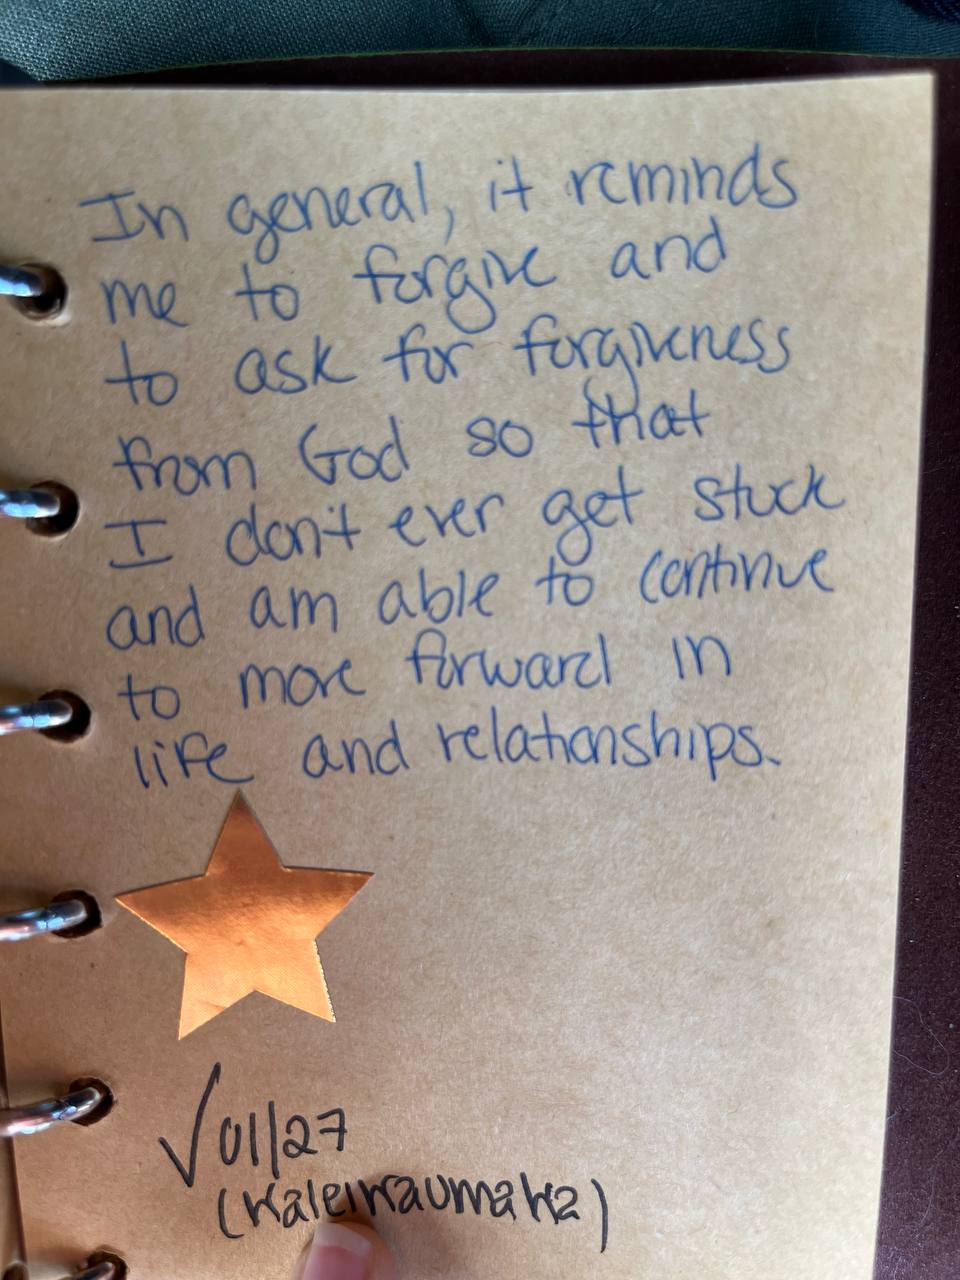 In general, it reminds
me to forgive and
to ask for forgiveness
from God so that
I don't ever get stuck
and am able to continue
to move forward in
life and relationships.
√01/27
(Kaleikaumaka)